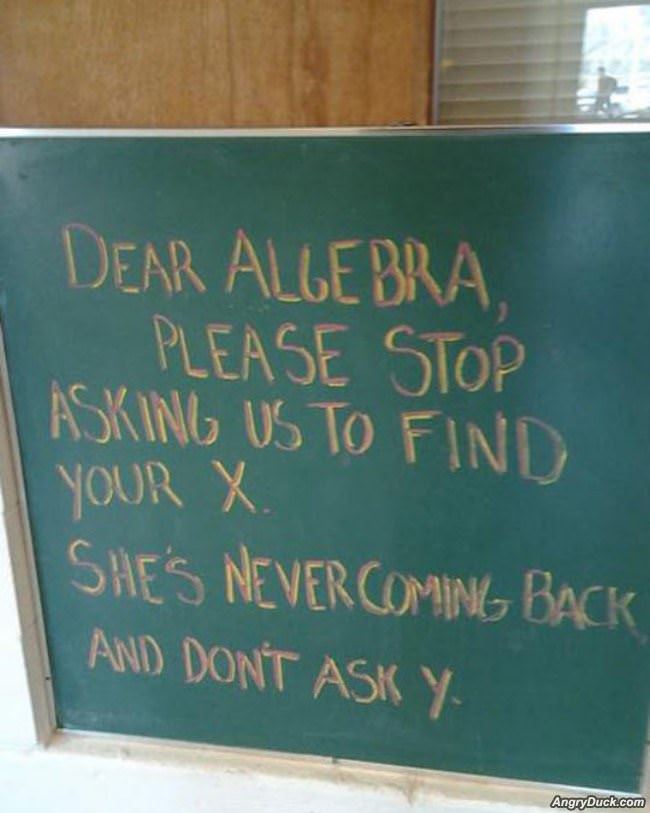 DEAR ALGEBRA,
PLEASE STOP
ASKING US TO FIND
YOUR X.
SHE'S NEVER COMING BACK
AND DON'T ASK Y.
AngryDuck.com